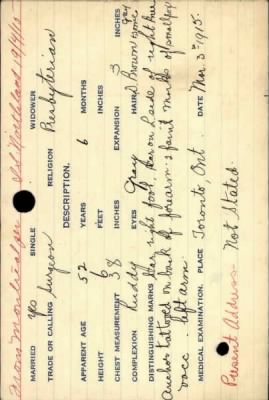 From Montreal per SS Northland 19/4/15
MARRIED yes SINGLE WIDOWER
TRADE OR CALLING Surgeon RELIGION Presbyterian
DESCRIPTION.
APPARENT AGE 52 YEARS 6 MONTHS
HEIGHT 6 FEET INCHES
CHEST MEASUREMENT 38 INCHES EXPANSION 3 INCHES
COMPLEXION Ruddy EYES Gray HAIR Brown some gray
DISTINGUISHING MARKS Scar right foot, scar on side of right knee
Anchor tattooed on back of forearm: 3 faint marks of smallpox
vacc. left arm.
MEDICAL EXAMINATION. PLACE Toronto, Ont. DATE Mar. 3rd 1915.
Present Address Not Stated.